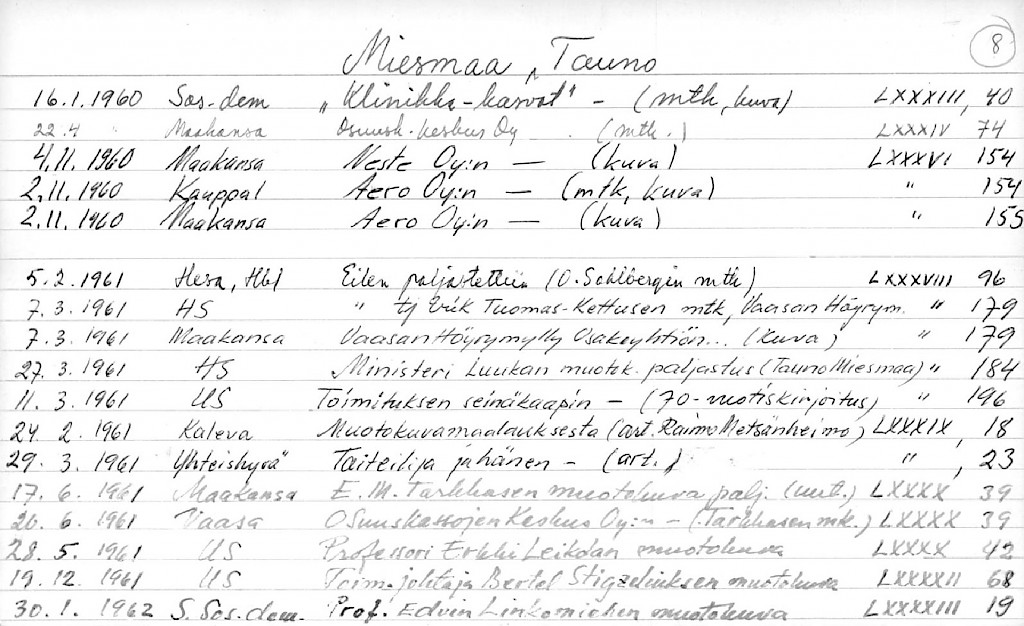 8
Miesmaa, Tauno
16.1.1960 Sos-dem "Klinikka-kasvot" - (mtk, kuva) LXXXIII, 40
22.4 " Maakansa Osuusk. keskus Oy - . (mtk.) LXXXIV 74
4.11.1960 Maakansa Neste Oy:n — (kuva) LXXXVI 154
2.11.1960 Kauppal Aero Oy:n — (mtk, kuva) " 154
2.11.1960 Maakansa Aero Oy:n — (kuva) " 155
5.2.1961 Hesa, Hbl Eilen paljastettiin (O. Sohlbergin mtk) LXXXVIII 96
7.3.1961 HS " tj Erik Tuomas-Kettusen mtk, Vaasan Höyrym. " 179
7.3.1961 Maakansa Vaasan Höyrymylly Osakeyhtiön... (kuva) " 179
27.3.1961 HS Ministeri Luukan muotok. paljastus (Tauno Miesmaa) " 184
11.3.1961 US Toimituksen seinäkaapin - (70-vuotiskirjoitus) " 196
24.2.1961 Kaleva Muotokuvamaalauksesta (art. Raimo Metsänheimo) LXXXIX, 18
29.3.1961 Yhteishyvä" Taiteilija ja hänen - (art.) " , 23
17.6.1961 Maakansa E.M. Tarkkasen muotokuva palj. LXXXX 39
20.6.1961 Vaasa Osuuskassojen Keskus Oy:n - (Tarkkasen mtk.) LXXXX 39
28.5.1961 US Professori Erkki Leikolan muotokuva LXXXX 42
19.12.1961 US Toim.johtaja Bertel Stigzeliuksen muotokuva LXXXXII 68
30.1.1962 S.Sos.dem. Prof. Edvin Linkomiehen muotokuva LXXXXIII 19